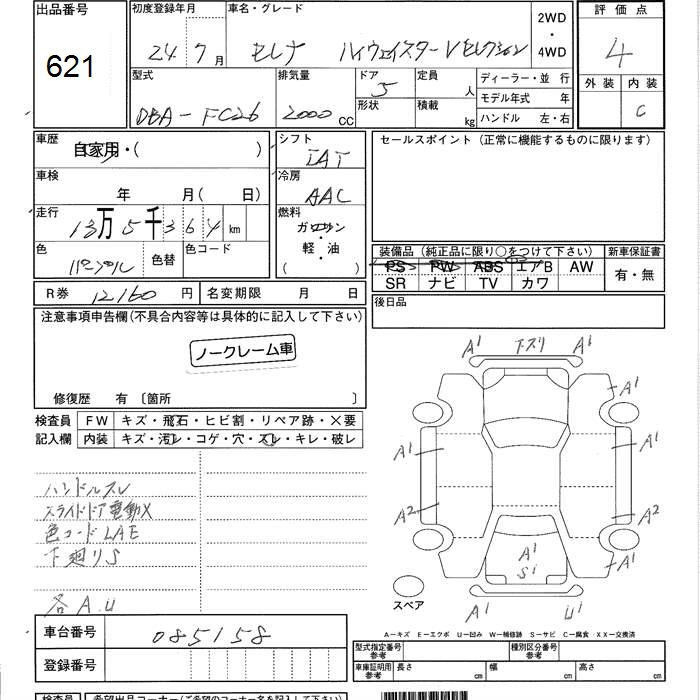 出品番号
621
初度登録年月
24 7 月
車名・グレード
セレナ ハイウェイスター Vセレクション
2WD
・
4WD
評価点
4
外装 内装
C
型式
DBA-FC26
排気量
2000 CC
ドア 5
形状
定員 人
積載 kg
ディーラー・並行
モデル年式 年
ハンドル 左・右
車歴
自家用・( )
シフト
IAT
セールスポイント (正常に機能するものに限ります)
車検
年 月( 日)
冷房
AAC
走行
13万5千364 km
燃料
ガソリン
・
軽・油
( )
色
パープル
色替
色コード
装備品 (純正品に限り○をつけて下さい)
PS PW ABS エアB AW
SR ナビ TV カワ
新車保証書
有・無
R券 12160 円
名変期限 月 日
後日品
注意事項申告欄(不具合内容等は具体的に記入して下さい)
ノークレーム車
修復歴 有 〔箇所 〕
検査員
記入欄
FW キズ・飛石・ヒビ割・リペア跡・×要
内装 キズ・汚レ・コゲ・穴・スレ・キレ・破レ
ハンドルスレ
スライドドア電動X
色コードLAE
下廻りS
各A.U
A1 下スリ A1
A1
A1 A1
A2 A2
A1
S1
A1
A1 U1
スペア
A-キズ E-エクボ U-凹み W-補修跡 S-サビ C-腐食 XX-交換済
車台番号
085158
登録番号
型式指定番号
参考
種別区分番号
参考
車庫証明用
参考
長さ cm
幅 cm
高さ cm
検査員
希望出品コーナー(ご希望のコーナー名を記入下さい)